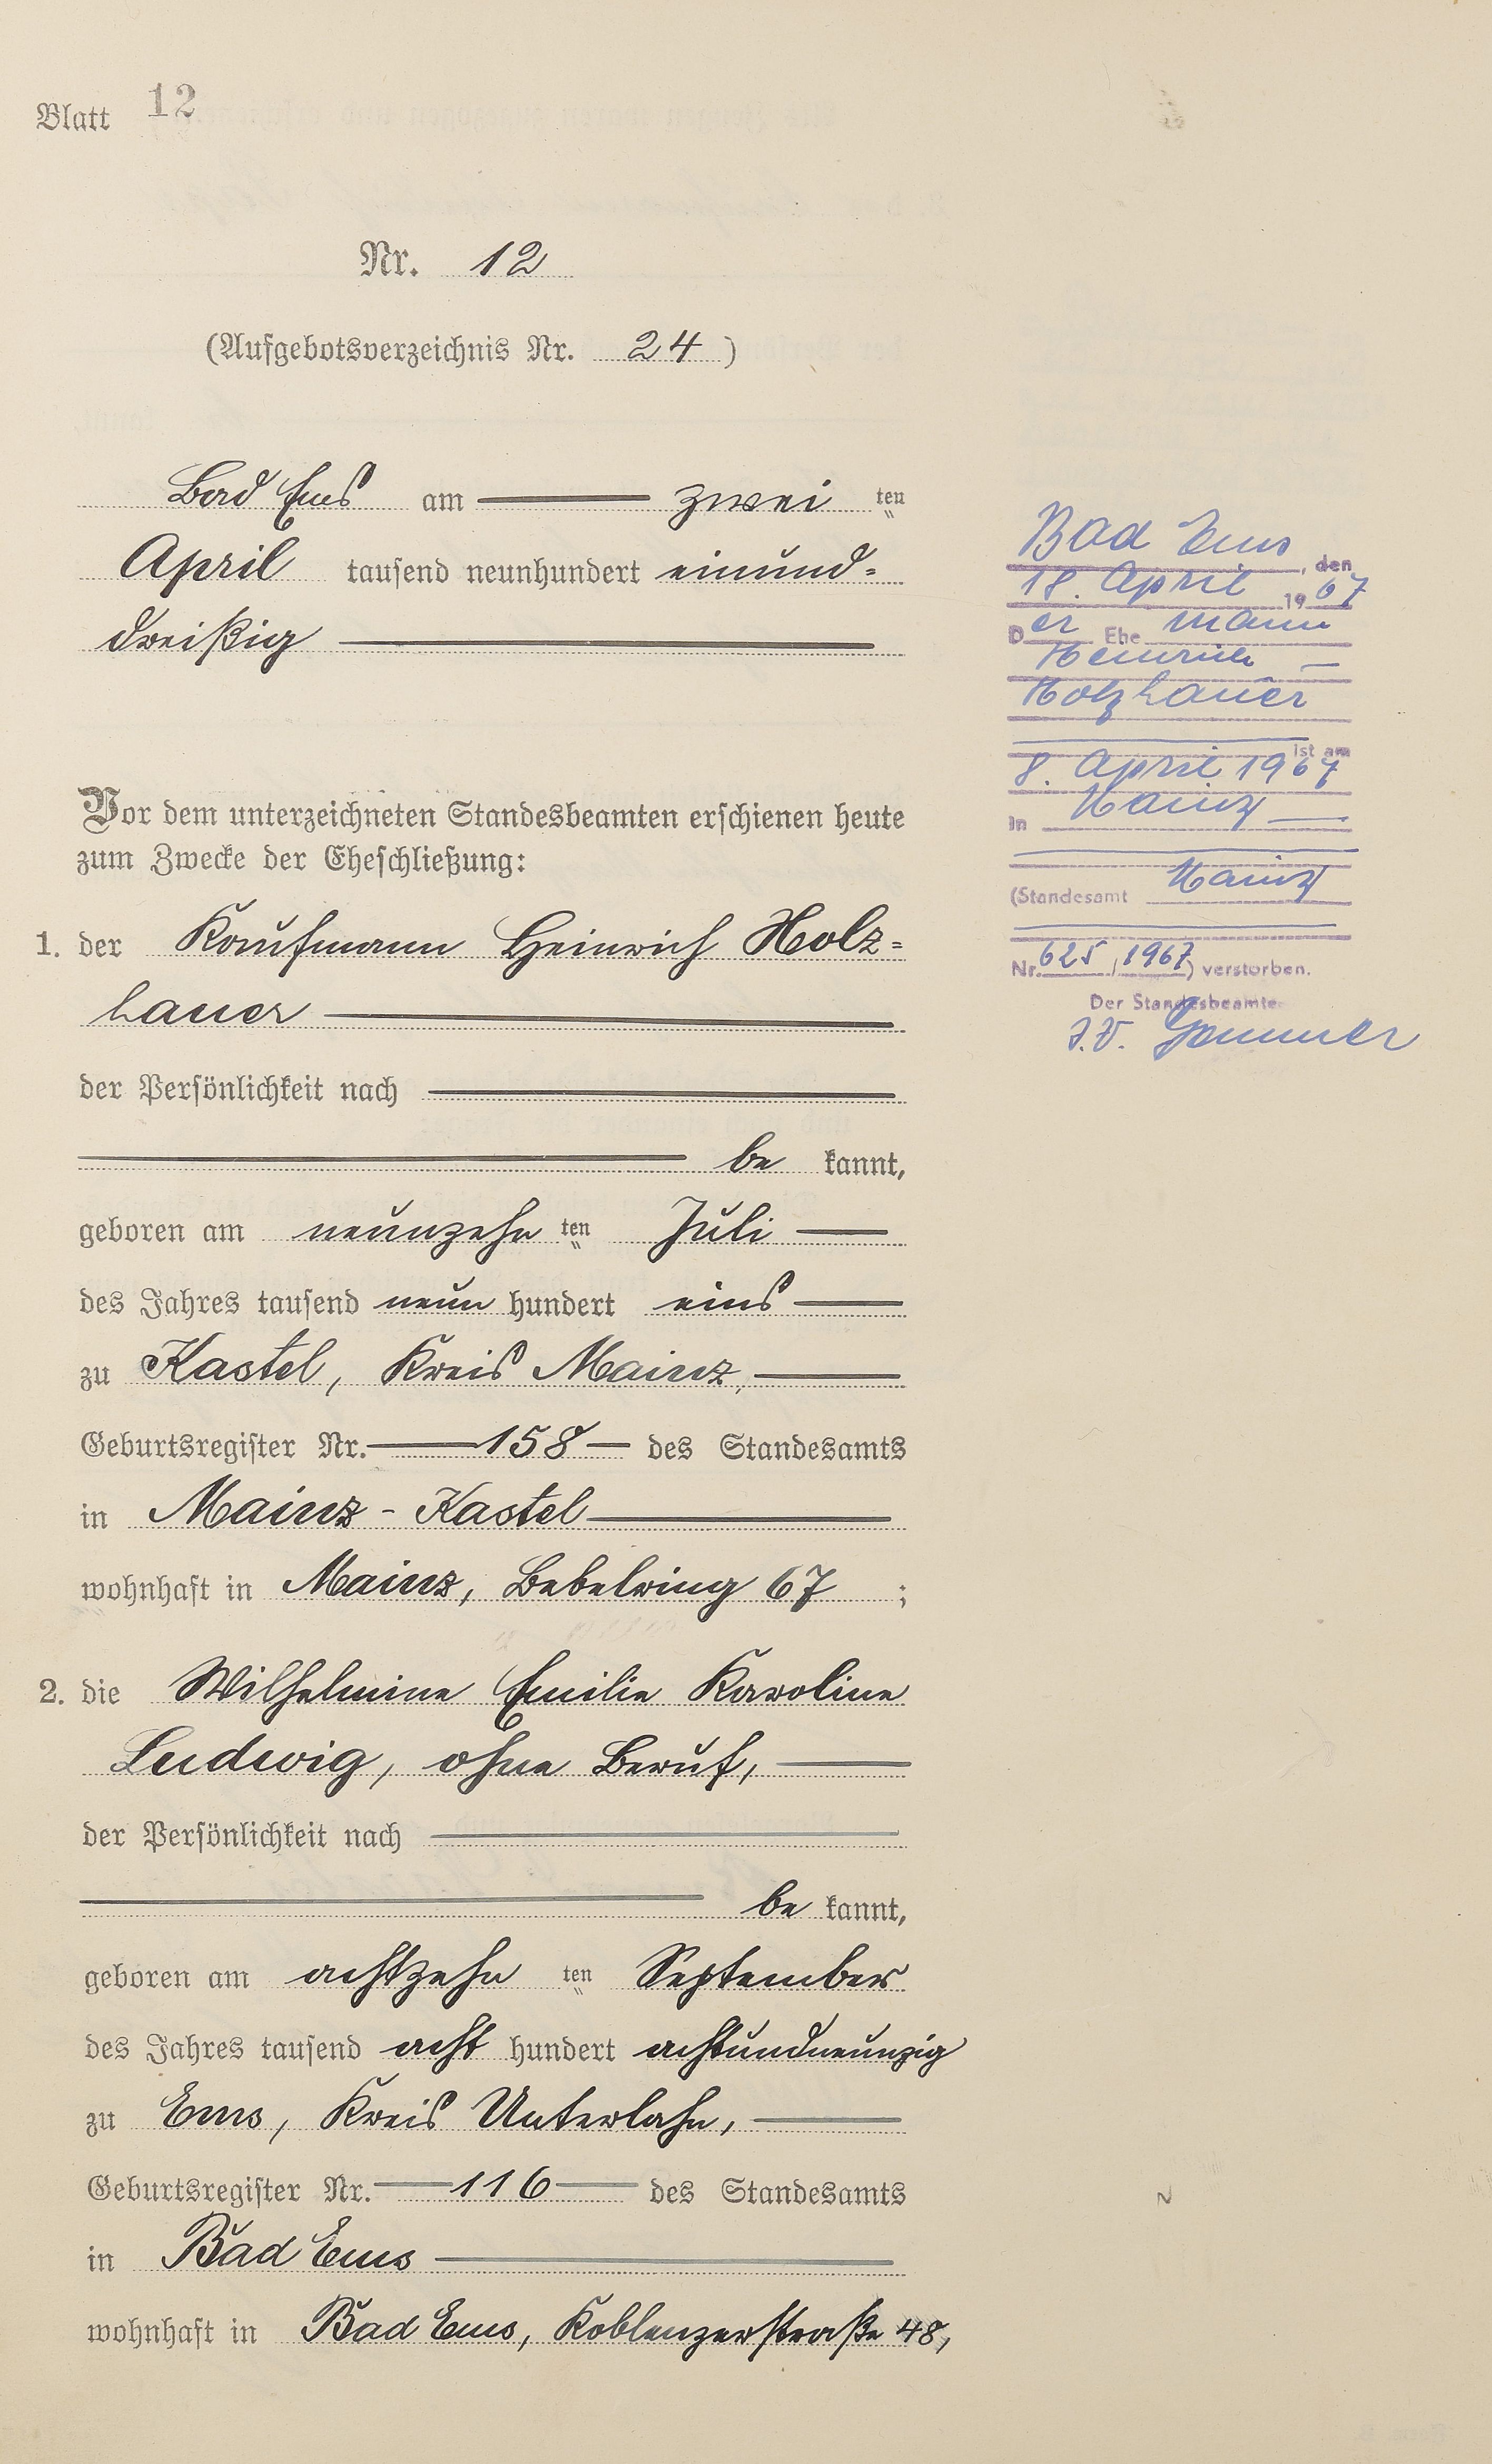 Blatt 12
Nr. 12
(Aufgebotsverzeichnis Nr. 24)
Bad Ems am zwei ten
April tausend neunhundert einund=
dreißig
Vor dem unterzeichneten Standesbeamten erschienen heute
zum Zwecke der Eheschließung:
1. der Kaufmann Heinrich Holz=
hauer
der Persönlichkeit nach
be kannt,
geboren am neunzehn ten Juli
des Jahres tausend neun hundert eins
zu Kastel, Kreis Mainz,
Geburtsregister Nr. 158 des Standesamts
in Mainz - Kastel
wohnhaft in Mainz, Bebelring 67 ;
2. die Wilhelmine Emilie Karoline
Ludwig, ohne Beruf,
der Persönlichkeit nach
be kannt,
geboren am achtzehn ten September
des Jahres tausend acht hundert achtundneunzig
zu Ems, Kreis Unterlahn,
Geburtsregister Nr. 116 des Standesamts
in Bad Ems
wohnhaft in Bad Ems, Koblenzerstraße 48,
Bad Ems, den
18. April 1967
Der Ehe mann
Heinrich
Holzhauer
ist am
8. April 1967
in Mainz
(Standesamt Mainz
Nr. 625/1967) verstorben.
Der Standesbeamte
J.V. Gemmer